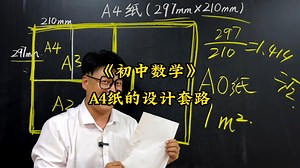 A4纸(297mm×210mm)
210mm
297mm
A4
A3
A2
297
210
=1.414
A0纸
1m².
《初中数学》
A4纸的设计套路